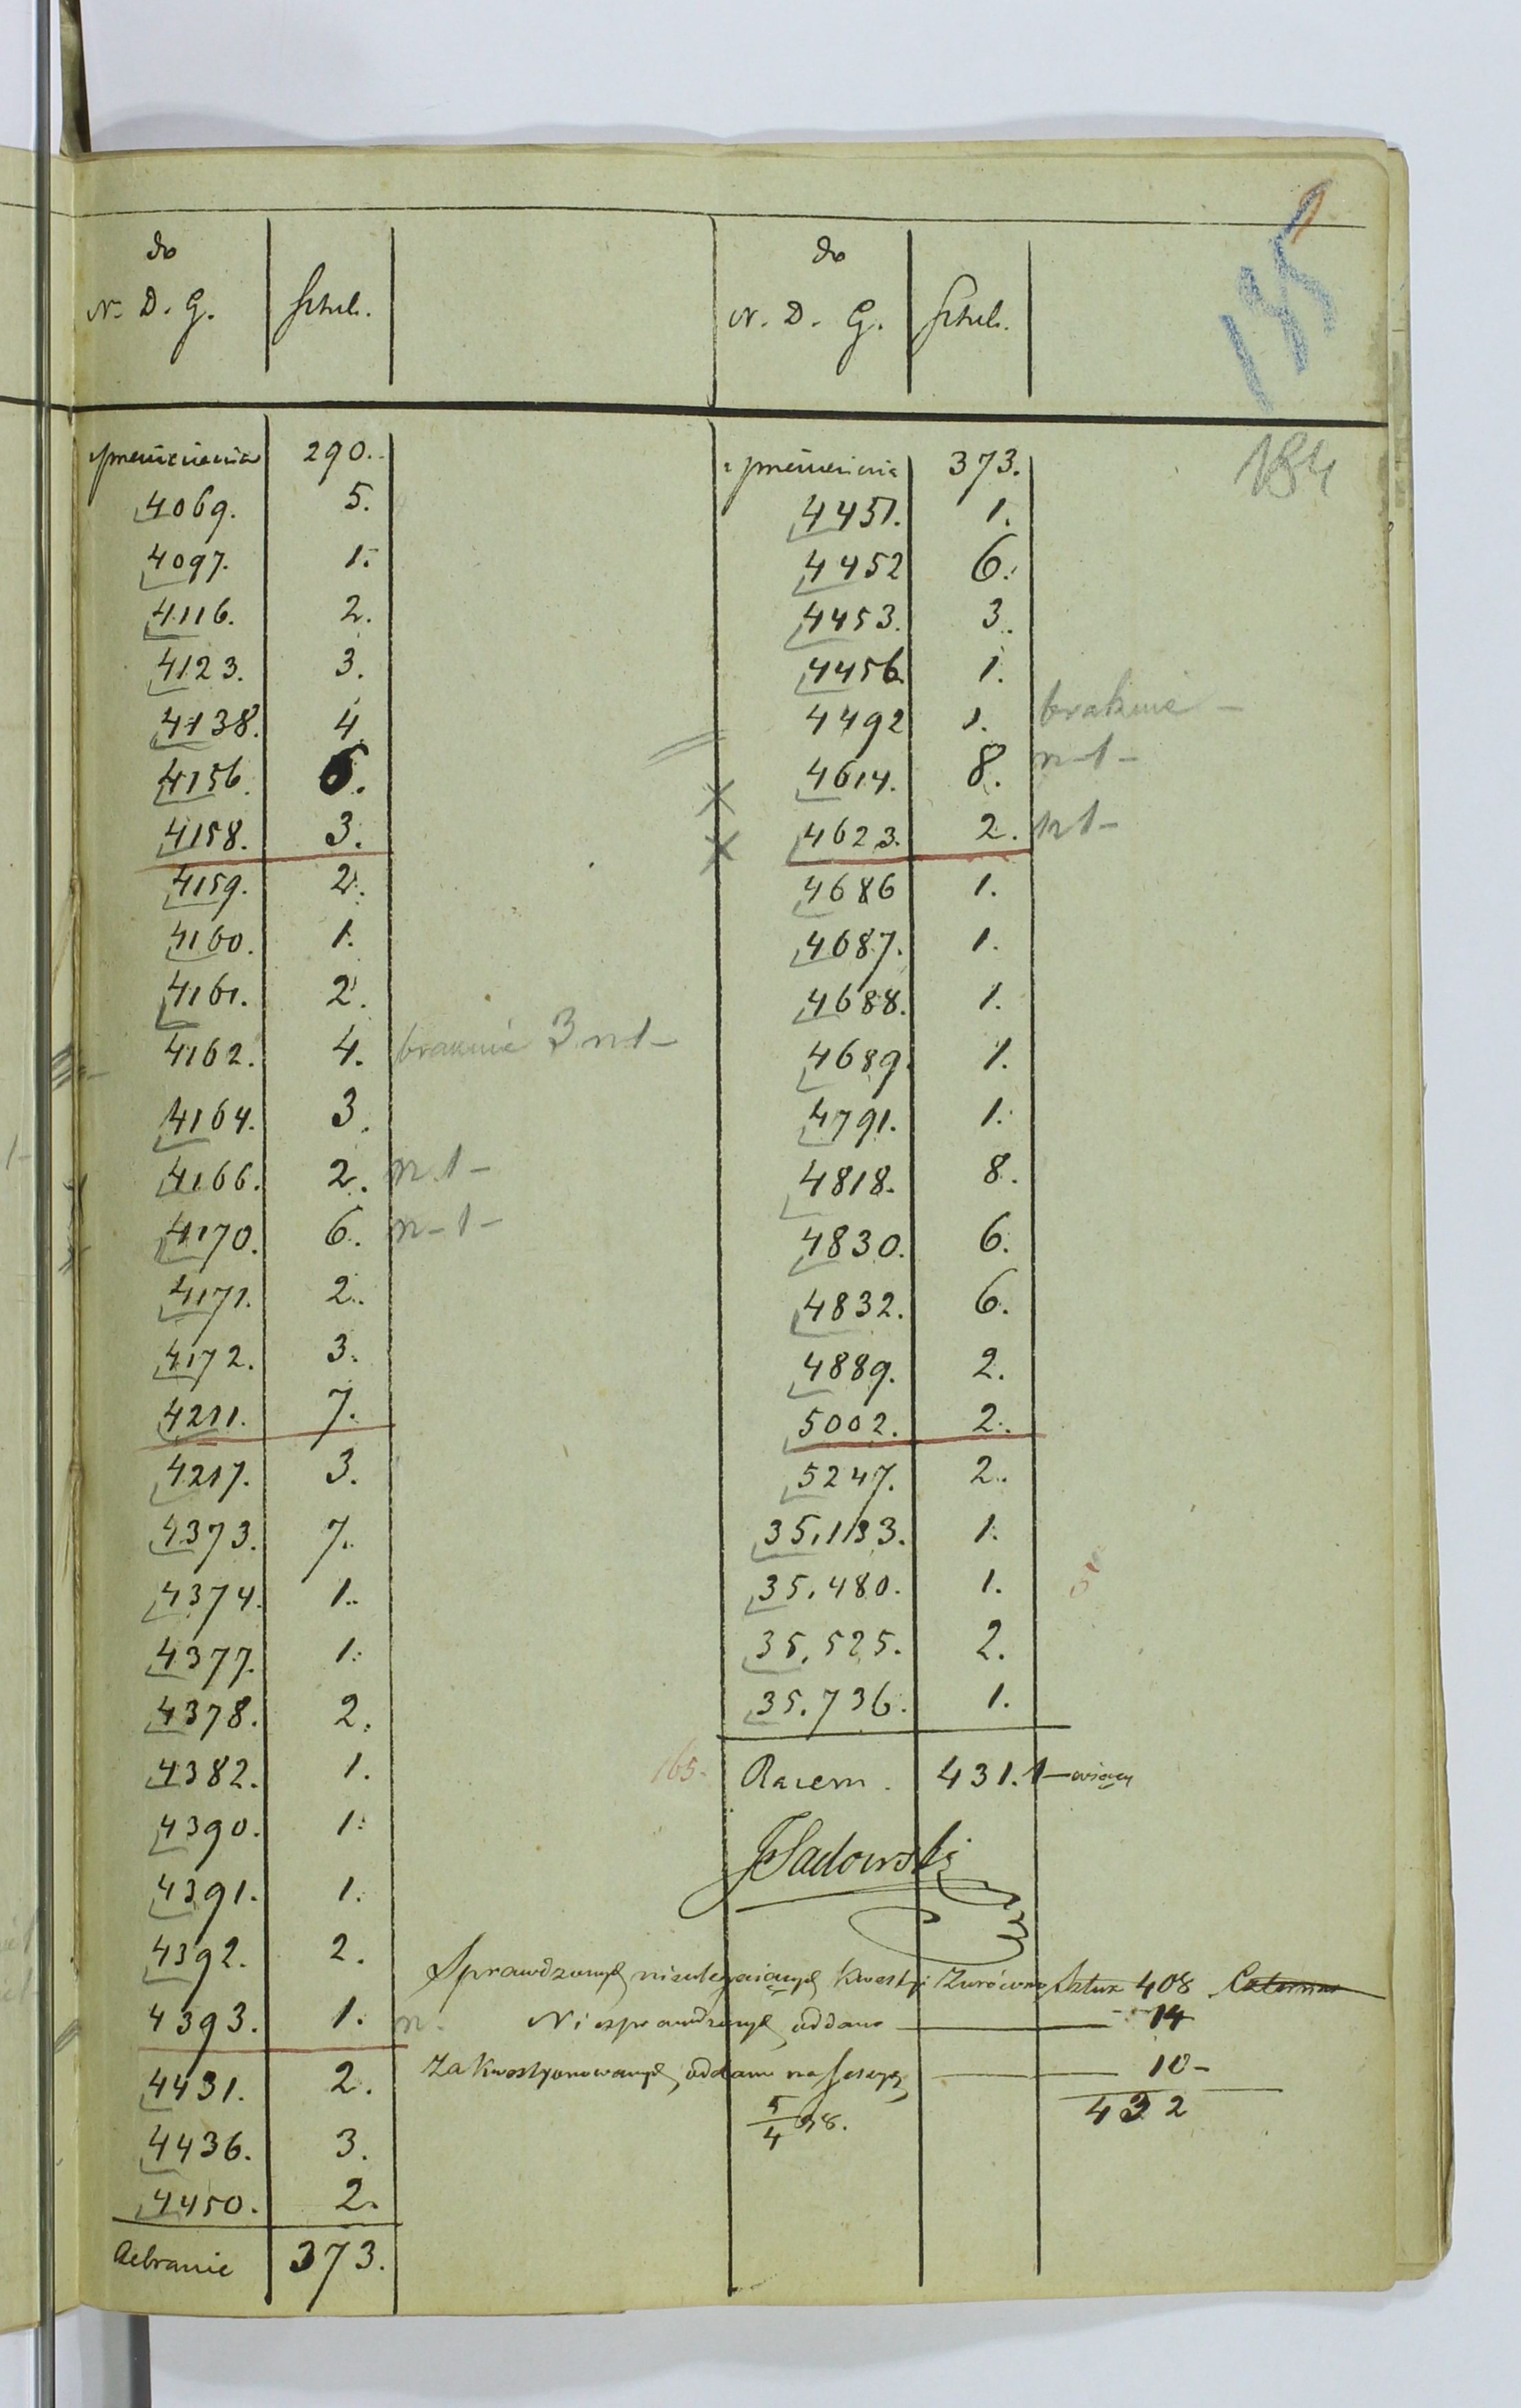 195
184
do
N. D. G. Sztuk.
z przeniesienia 290.
4069. 5.
4097. 1.
4116. 2.
4123. 3.
4138. 4.
4156. 6.
4158. 3.
4159. 2.
4160. 1.
4161. 2.
4162. 4. braknie 3 n 1-
4164. 3.
4166. 2. n 1-
4170. 6. n-1-
4171. 2.
4172. 3.
4211. 7.
4217. 3.
4373. 7.
4374. 1.
4377. 1.
4378. 2.
4382. 1.
4390. 1.
4391. 1.
4392. 2.
4393. 1. n.
4431. 2.
4436. 3.
4450. 2.
Zebranie 373.
do
N. D. G. Sztuk.
z przeniesienia 373.
4451. 1.
4452 6.
4453. 3.
4456. 1.
4492 1. braknie -
4614. 8. n-1-
4623. 2. n1-
4686 1.
4687. 1.
4688. 1.
4689. 1.
4791. 1.
4818. 8.
4830. 6.
4832. 6.
4889. 2.
5002. 2.
5247. 2.
35,133. 1.
35,480. 1.
35,525. 2.
35,736. 1.
165. Razem. 431. 1-więcej
Sadowski
Sprawdzonych nieulegających kwestyi zwrócono sztuk 408
Niesprawdzonych oddano 14
Zakwestyonowanych, oddano na sesyę 10-
432
5/4 98.